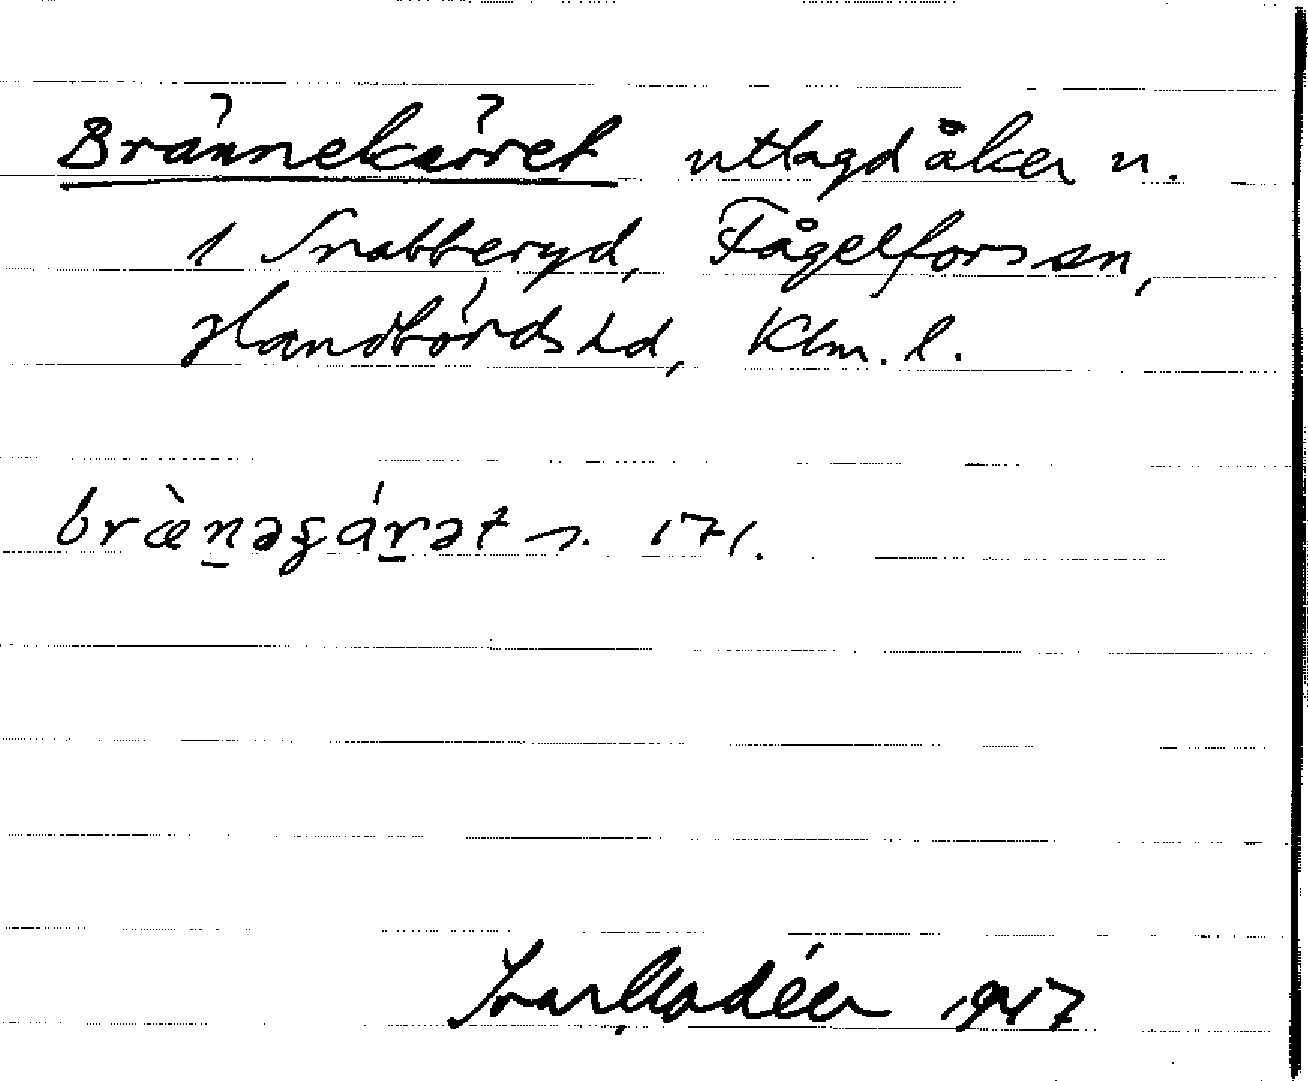 Brännekärret utlagd åker u.
1 Snabberyd, Fågelfors sn,
Handbörds hd, Klm. l.
brænəʓárət n. 171.
Ivar Modéer 1947